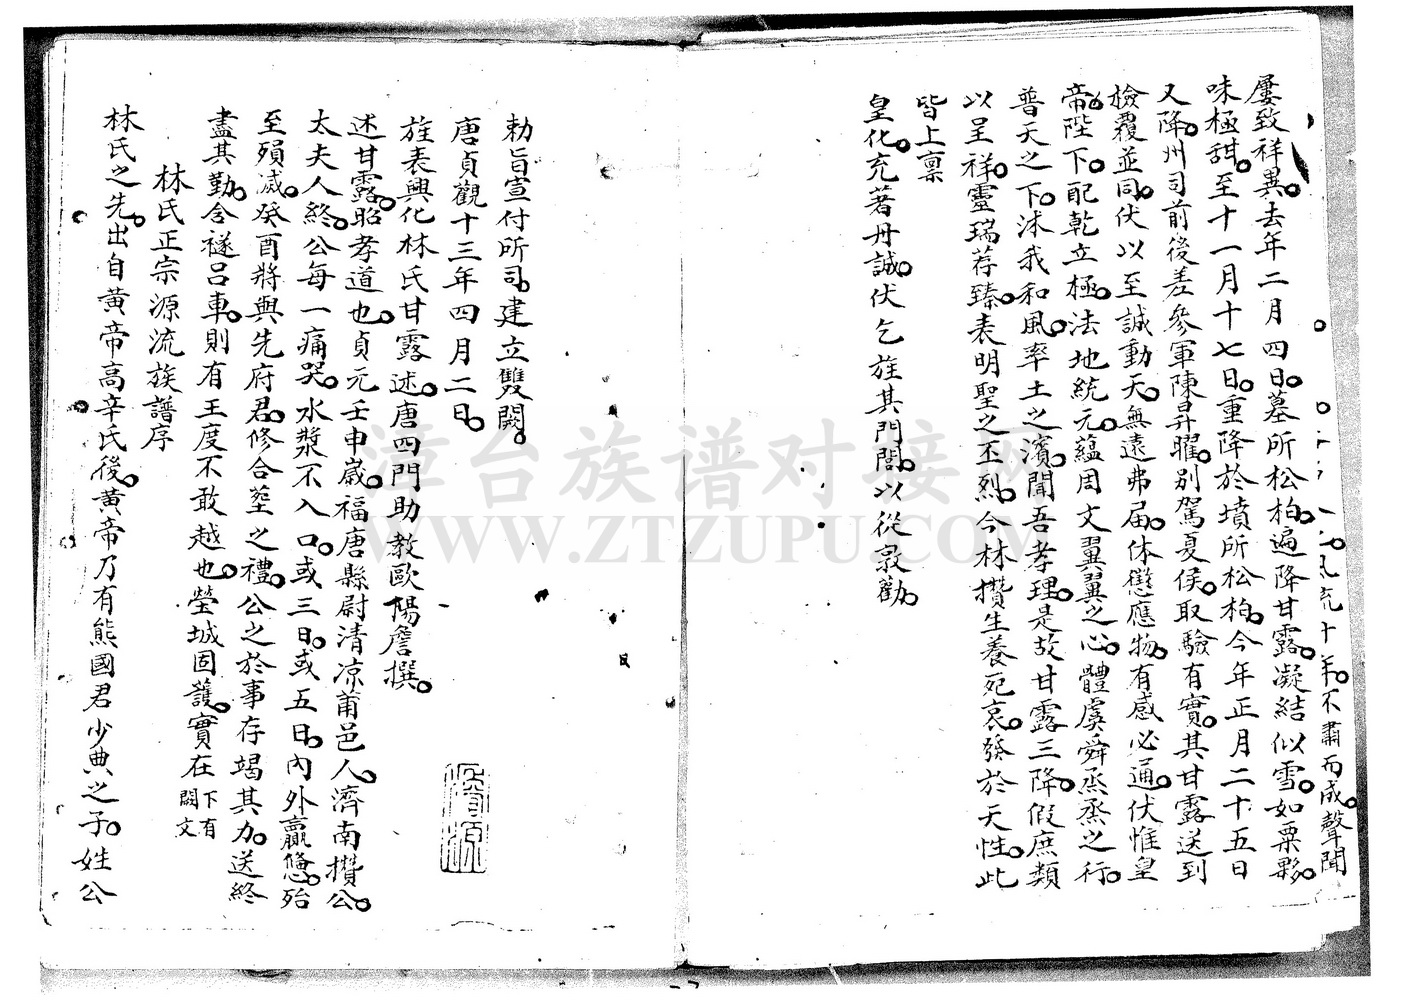 風流十年不肅而成聲聞
屢致祥異去年二月四日墓所松柏遍降甘露凝結似雪如粟夥
味極甜至十一月十七日重降於墳所松柏今年正月二十五日
又降州司前後差參軍陳昇曜別駕夏侯取驗有實其甘露送到
檢覆並同伏以至誠動天無遠弗届体懲應物有感必通伏惟皇
帝陛下配乾立極法地統元蘊周文翼翼之心體虞舜烝烝之行
普天之下沐我和風率土之濱聞吾孝理是故甘露三降假庶類
以呈祥靈瑞荐臻表明聖之丕烈今林攢生養死哀發於天性此
皆上稟
皇化充著丹誠伏乞旌其門閭以從敦勸
勅旨宣付所司建立雙闕
唐貞觀十三年四月二日
旌表興化林氏甘露述唐四門助教歐陽詹撰
述甘露昭孝道也貞元壬申歲福唐縣尉清涼莆邑人濟南攢公
太夫人終公每一痛哭水漿不入口或三日或五日內外羸憊殆
至殞滅癸酉將與先府君修合塟之禮公之於事存竭其力送終
盡其勤含襚呂車則有王度不敢越也塋城固護實在下有闕文
林氏正宗源流族譜序
林氏之先出自黃帝高辛氏後黃帝乃有熊國君少典之子姓公
漳台族谱对接网
WWW.ZTZUPU.COM